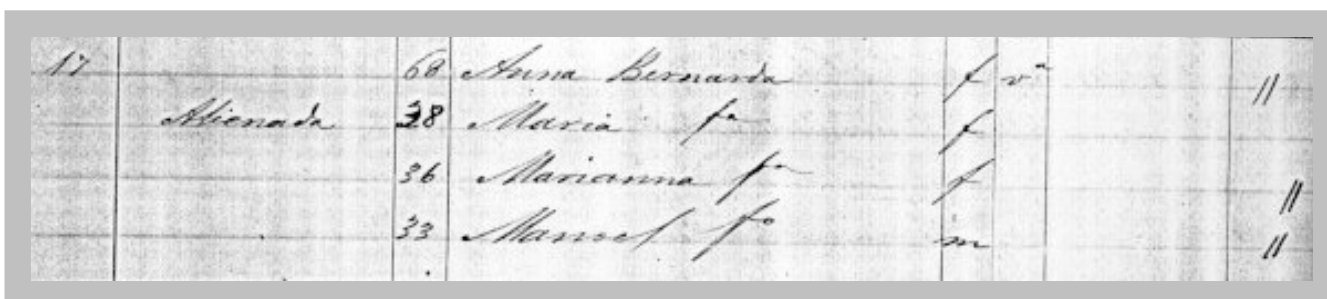 17 60 Anna Bernarda f vª //
Alienada 38 Maria fª f
36 Marianna fª f //
33 Manoel fº m //